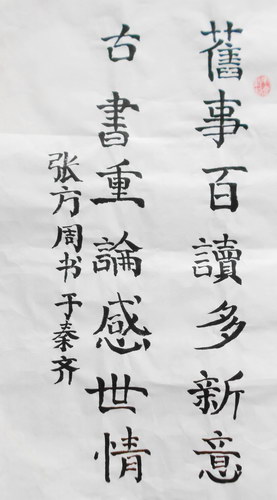 舊事百讀多新意
古書重論感世情
张方周书于秦齐